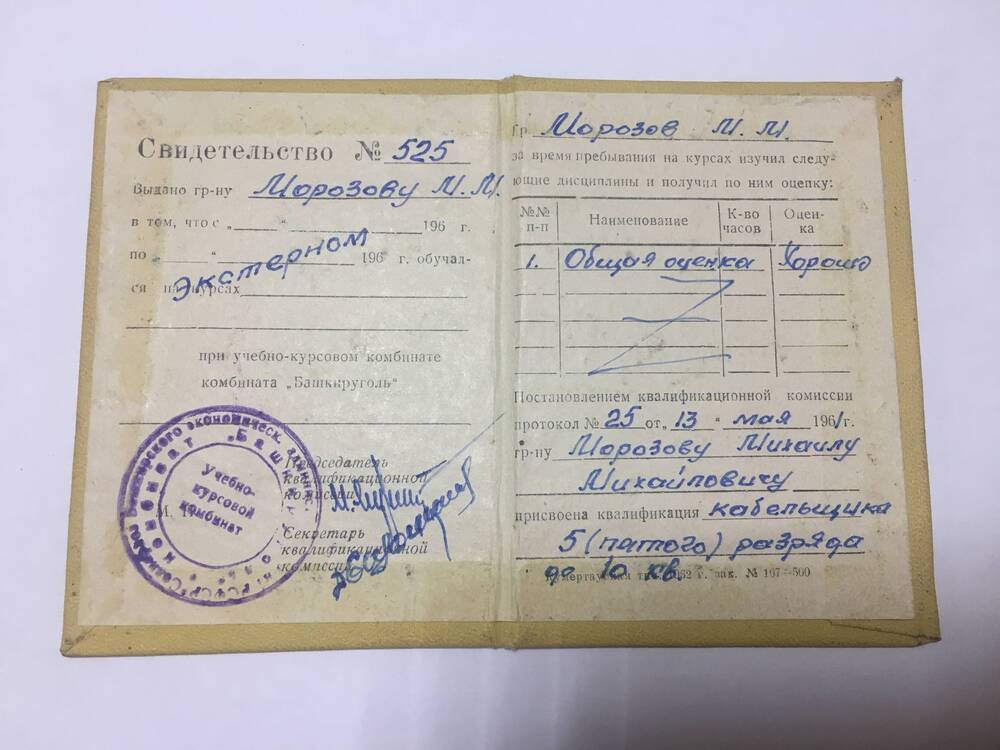 Свидетельство № 525
Выдано гр-ну Морозову М.М.
в том, что с „ “ 196 г.
по „ “ 196 г. обучал-
ся на курсах экстерном
при учебно-курсовом комбинате
комбината „Башкируголь“
Председатель
квалификационной
комиссии
Секретарь
квалификационной
комиссии
Учебно-
курсовой
комбинат
Гр. Морозов М. М.
за время пребывания на курсах изучил следу-
ющие дисциплины и получил по ним оценку:
№№ п-п Наименование К-во часов Оцен-ка
1. Общая оценка хорошо
Постановлением квалификационной комиссии
протокол № 25 от „13 “ мая 1961 г.
гр-ну Морозову Михаилу
Михайловичу
присвоена квалификация кабельщика
5 (пятого) разряда
до 10 кв.
зак. № 197—500